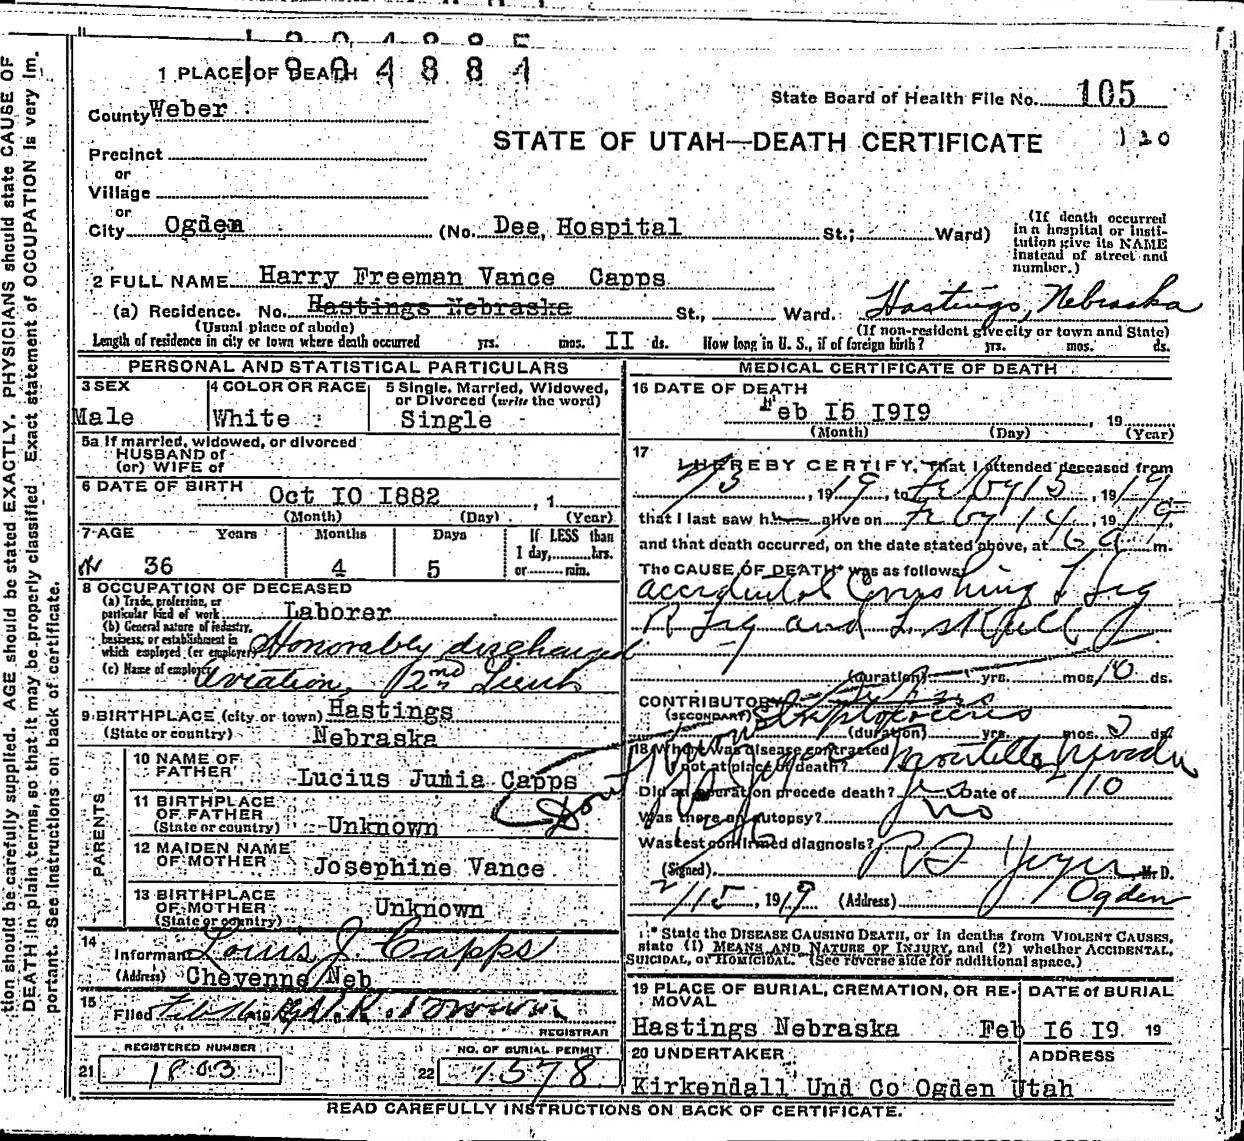 1904884
1 PLACE OF DEATH
County Weber
State Board of Health File No. 105
STATE OF UTAH—DEATH CERTIFICATE
120
Precinct
or
Village
or
City Ogden (No. Dee, Hospital St.; Ward)
(If death occurred in a hospital or insti-
tution give its NAME
instead of street and
number.)
2 FULL NAME Harry Freeman Vance Capps
(a) Residence. No. Hastings Nebraska St., Ward. Hastings, Nebraska
(Usual place of abode) (If non-resident give city or town and State)
Length of residence in city or town where death occurred yrs. mos. II ds. How long in U. S., if of foreign birth? yrs. mos. ds.
PERSONAL AND STATISTICAL PARTICULARS
3 SEX
Male
4 COLOR OR RACE
White
5 Single, Married, Widowed,
or Divorced (write the word)
Single
5a If married, widowed, or divorced
HUSBAND of
(or) WIFE of
6 DATE OF BIRTH Oct IO I882, 1
(Month) (Day) (Year)
7 AGE Years Months Days If LESS than
1 day, hrs.
or min.
36 4 5
8 OCCUPATION OF DECEASED
(a) Trade, profession, or
particular kind of work Laborer
(b) General nature of industry,
business, or establishment in
which employed (or employer) Honorably discharged
(c) Name of employer Aviation, 2nd Lieut
9 BIRTHPLACE (city or town) Hastings
(State or country) Nebraska
PARENTS
10 NAME OF
FATHER Lucius Junia Capps
11 BIRTHPLACE
OF FATHER
(State or country) Unknown
12 MAIDEN NAME
OF MOTHER Josephine Vance
13 BIRTHPLACE
OF MOTHER
(State or country) Unknown
14
Informant Louis J. Capps
(Address) Cheyenne Neb
15
Filed Feb 16
REGISTRAR
REGISTERED NUMBER
21 1803
NO. OF BURIAL PERMIT
22 1578
MEDICAL CERTIFICATE OF DEATH
16 DATE OF DEATH
Feb I5 I9I9, 19
(Month) (Day) (Year)
17
I HEREBY CERTIFY, That I attended deceased from
2/3, 1919, to Feby 15, 1919
that I last saw h alive on Feby 14, 1919
and that death occurred, on the date stated above, at 6 a m.
The CAUSE OF DEATH* was as follows:
accidental Crushing L Leg
R Leg and L skull
(duration) yrs. mos. 10 ds.
CONTRIBUTORY
(SECONDARY) Streptococcus
(duration) yrs. mos. ds.
18 Where was disease contracted
if not at place of death? Montello Nevada
Did an operation precede death? yes Date of 2/10
Was there an autopsy? no
Was test confirmed diagnosis?
(Signed), M. D.
2/15, 1919 (Address) Ogden
* State the DISEASE CAUSING DEATH, or in deaths from VIOLENT CAUSES,
state (1) MEANS AND NATURE OF INJURY, and (2) whether ACCIDENTAL,
SUICIDAL, or HOMICIDAL. (See reverse side for additional space.)
19 PLACE OF BURIAL, CREMATION, OR RE-
MOVAL
Hastings Nebraska
DATE of BURIAL
Feb I6 I9. 19
20 UNDERTAKER
Kirkendall Und Co Ogden Utah
ADDRESS
READ CAREFULLY INSTRUCTIONS ON BACK OF CERTIFICATE.
tion should be carefully supplied. AGE should be stated EXACTLY. PHYSICIANS should state CAUSE OF
DEATH in plain terms, so that it may be properly classified. Exact statement of OCCUPATION is very im-
portant. See instructions on back of certificate.